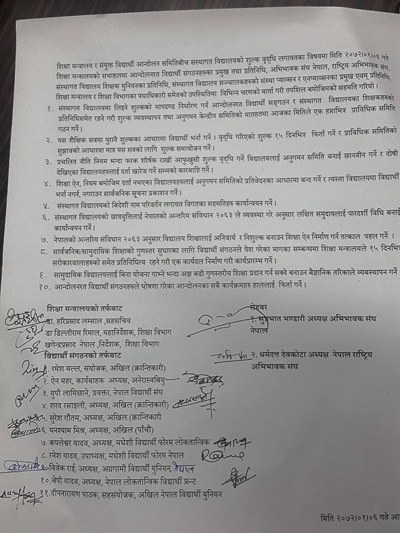 शिक्षा मन्त्रालय र संयुक्त विद्यार्थी आन्दोलन समितिबीच संस्थागत विद्यालयको शुल्क वृद्धि लगायतका विषयमा मिति २०७२।०१।०६ गते
शिक्षा मन्त्रालयको सभाहलमा आन्दोलनरत विद्यार्थी संगठनहरुका प्रमुख तथा प्रतिनिधि, अभिभावक संघ नेपाल, राष्ट्रिय अभिभावक संघ,
संस्थागत विद्यालय शिक्षक युनियनका प्रतिनिधि, संस्थागत विद्यालय सञ्चालकहरुको संस्था प्याब्सन र एनप्याब्सनका प्रमुख एवम् प्रतिनिधि,
शिक्षा मन्त्रालय र शिक्षा विभागका पधाधिकारी समेतको उपस्थितिमा विभिन्न चरणको वार्ता गरी तपशिल बमोजिमको सहमति गरियो ।
१. संस्थागत विद्यालयमा लिइने शुल्कको मापदण्ड निर्धारण गर्न आन्दोलनरत विद्यार्थी सङ्गठन र संस्थागत विद्यालयका शिक्षकहरुको
प्रतिनिधिसमेत रहने गरी शुल्क व्यवस्थापन तथा अनुगमन केन्द्रीय समितिको मातहतमा आजका मितिले एक हप्ताभित्र प्राविधिक समिति
गठन गर्ने ।
२. यस शैक्षिक सत्रमा पुरानै शुल्कका आधारमा विद्यार्थी भर्ना गर्ने । वृद्धि गरिएको शुल्क १५ दिनभित्र फिर्ता गर्ने र प्राविधिक समितिको
सुझावको आधारमा मात्र यस सत्रको लागि शुल्क समायोजन गर्ने ।
३. प्रचलित नीति नियम भन्दा फरक शीर्षक राखी आफुखुसी शुल्क वृद्धि गर्ने विद्यालयलाई अनुगमन समिति बनाई छानवीन गर्ने र दोषी
देखिएका विद्यालयहरुलाई दर्ता खारेज गर्ने सम्मको कारबाहि गर्ने ।
४. शिक्षा ऐन, नियम बमोजिम दर्ता नभएका विद्यालयहरुलाई अनुगमन समितिको प्रतिवेदनका आधारमा बन्द गर्ने र त्यस्ता विद्यालयमा विद्यार्थी
भर्ना नगर्न, नगराउन सार्वजनिक सूचना प्रकाशन गर्ने ।
५. संस्थागत विद्यालयको विदेशी नाम परिवर्तन लगायत विगतका सहमतिहरु कार्यान्वयन गर्ने ।
६. संस्थागत विद्यालयको छात्रवृत्तिलाई नेपालको अन्तरिम संविधान २०६३ ले व्यवस्था गरे अनुसार लक्षित समुदायलाई पारदर्शी विधि बनाई
कार्यान्वयन गर्ने ।
७. नेपालको अन्तरिम संविधान २०६३ अनुसार विद्यालय शिक्षालाई अनिवार्य र निशुल्क बनाउन शिक्षा ऐन निर्माण गर्न तत्काल पहल गर्ने ।
८. सार्वजनिक/सामुदायिक शिक्षाको गुणस्तर सुधारका लागि विद्यार्थी संगठनले पेश गरेका मागका सम्बन्धमा शिक्षा मन्त्रालयले १५ दिनभित्र
सरोकारवालाहरुको समेत प्रतिनिधित्व रहने गरी एक कार्यदल निर्माण गरी कार्यप्रारम्भ गर्ने ।
९. सामुदायिक विद्यालयलाई बिच योजना गाभ्ने भन्दा अझ बढी गुणस्तरीय शिक्षा प्रदान गर्न सक्ने बनाउन बैज्ञानिक तरीकाले व्यवस्थापन गर्ने
१०. आन्दोलनरत विद्यार्थी संगठनहरुले घोषणा गरेका आन्दोलनका सबै कार्यक्रमहरु हाललाई फिर्ता गर्ने ।
शिक्षा मन्त्रालयको तर्फवाट
रोहवर
डा. हरिप्रसाद लम्साल, सहसचिव
१. सुप्रभात भण्डारी अध्यक्ष अभिभावक संघ
नेपाल
डा डिल्लीराम रिमाल, महानिर्देशक, शिक्षा विभाग
खगेन्द्रप्रसाद नेपाल, निर्देशक, शिक्षा विभाग
विद्यार्थी संगठनको तर्फबाट
२. धर्मदत्त देवकोटा अध्यक्ष नेपाल राष्ट्रिय
अभिभावक संघ
१. रमेश मल्ल, संयोजक, अखिल (क्रान्तिकारी)
२. ऐन महर, कार्यबाहक अध्यक्ष, अनेरास्ववियु
३. युपी लामिछाने, प्रवक्ता, नेपाल विद्यार्थी संघ
४. शरद रसाइली, अध्यक्ष, अखिल (क्रान्तिकारी)
५. सुरेश गौतम, अध्यक्ष, अखिल (क्रान्तिकारी)
६. घनश्याम मिश्र, अध्यक्ष, अखिल (पाँचौं)
७. कपलेश्वर यादव, अध्यक्ष, मधेशी विद्यार्थी फोरम लोकतान्त्रिक
८. रमेश यादव, उपाध्यक्ष, मधेशी विद्यार्थी फोरम नेपाल
९. विवेक राई, अध्यक्ष, अग्रगामी विद्यार्थी युनियन, नेपाल
१०. जेपी यादव, अध्यक्ष, नेपाल लोकतान्त्रिक विद्यार्थी फ्रन्ट
११. दीपनारायण पाठक, सहसंयोजक, अखिल नेपाल विद्यार्थी युनियन
मिति २०७२/०१/०६ गते